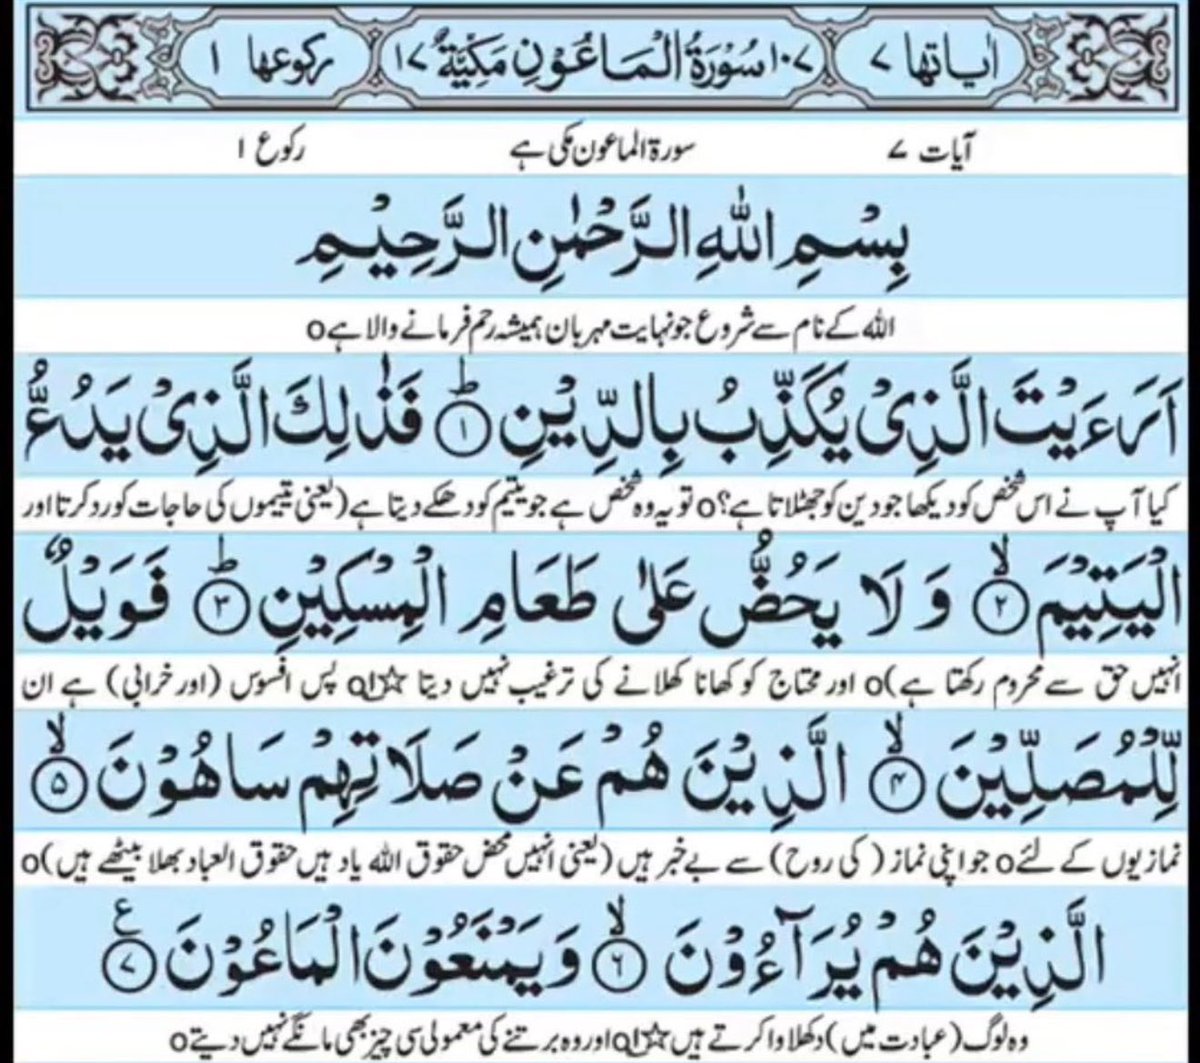 اٰیاتها ۷ ۱۰۷ سُوْرَةُ الْمَاعُوْنِ مَكِّيَّةٌ ۱۷ رکوعها ۱
آیات ۷ سورۃ الماعون مکی ہے رکوع ۱
بِسْمِ اللهِ الرَّحْمٰنِ الرَّحِيْمِ
اللہ کے نام سے شروع جو نہایت مہربان ہمیشہ رحم فرمانے والا ہے o
اَرَءَيْتَ الَّذِىْ يُكَذِّبُ بِالدِّيْنِ ؕ۝۱ فَذٰلِكَ الَّذِىْ يَدُعُّ
کیا آپ نے اس شخص کو دیکھا جو دین کو جھٹلاتا ہے؟ o تو یہ وہ شخص ہے جو یتیم کو دھکے دیتا ہے (یعنی یتیموں کی حاجات کو رد کرتا اور
الْيَتِيْمَ ۙ۝۲ وَ لَا يَحُضُّ عَلٰى طَعَامِ الْمِسْكِيْنِ ؕ۝۳ فَوَيْلٌ
انہیں حق سے محروم رکھتا ہے) o اور محتاج کو کھانا کھلانے کی ترغیب نہیں دیتا ☆۱ o پس افسوس (اور خرابی) ہے ان
لِّلْمُصَلِّيْنَ ۙ۝۴ الَّذِيْنَ هُمْ عَنْ صَلَاتِهِمْ سَاهُوْنَ ۙ۝۵
نمازیوں کے لئے o جو اپنی نماز (کی روح) سے بے خبر ہیں (یعنی انہیں محض حقوق اللہ یاد ہیں حقوق العباد بھلا بیٹھے ہیں) o
الَّذِيْنَ هُمْ يُرَآءُوْنَ ۙ۝۶ وَيَمْنَعُوْنَ الْمَاعُوْنَ ۝۷ ع
وہ لوگ (عبادت میں) دکھلاوا کرتے ہیں ☆۱ o اور وہ برتنے کی معمولی سی چیز بھی مانگے نہیں دیتے o